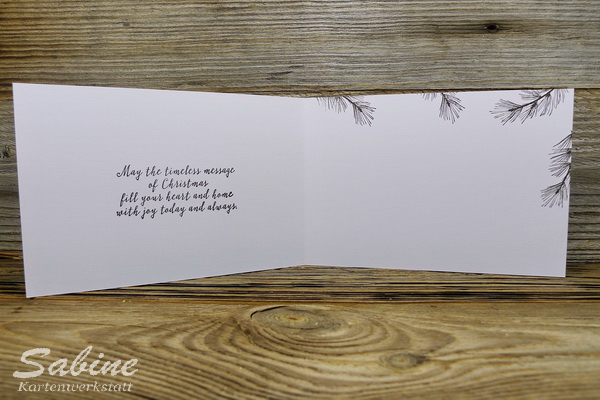 May the timeless message
of Christmas
fill your heart and home
with joy today and always.
Sabine
Kartenwerkstatt